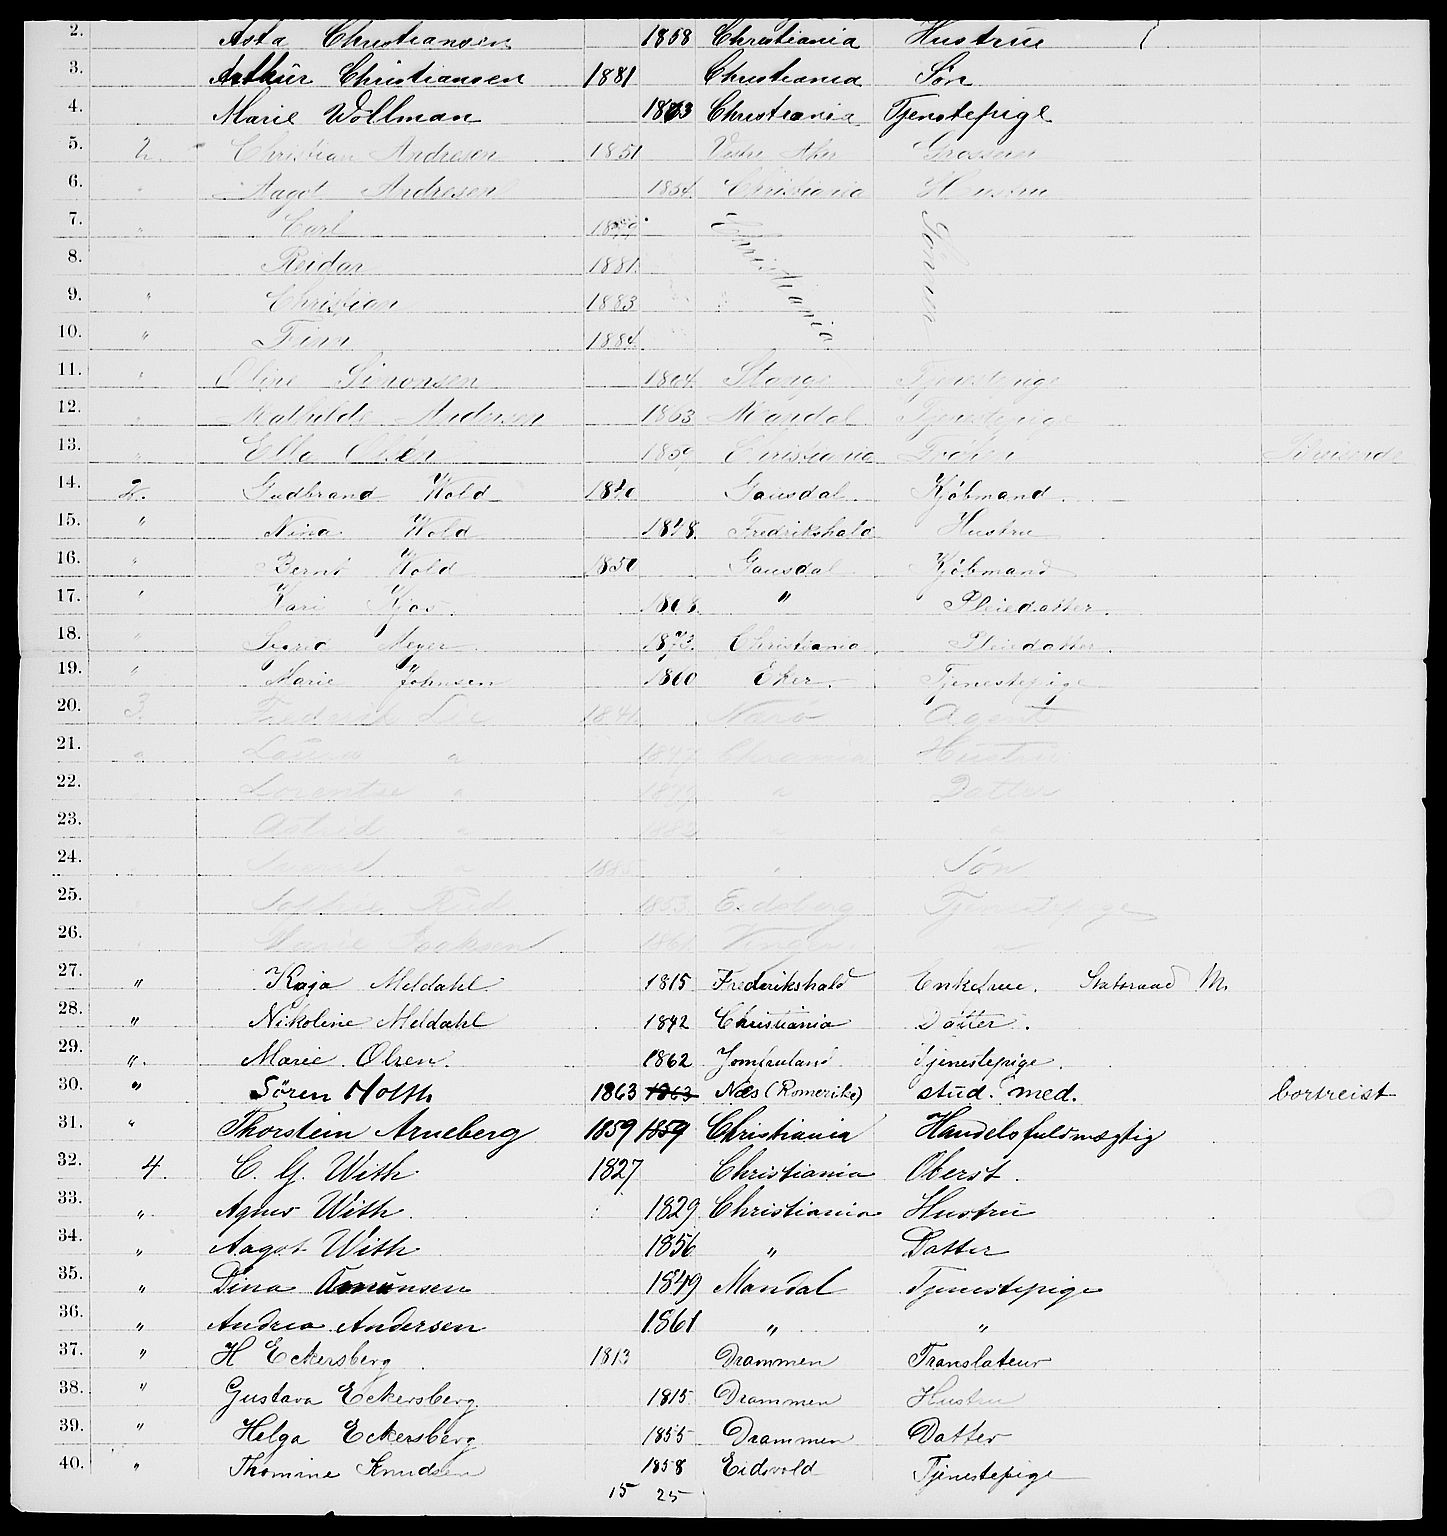 2. Asta Christiansen 1858 Christiania Hustrue
3. Arthur Christiansen 1881 Christiania Søn
4. Marie Wollman 1863 Christiania Tjenestepige
5. 2. Christian Andresen 1851 Vestre Aker Grosserer
6. " Aagot Andresen 1854 Christiania Hustru
7. " Carl 1879 Christiania Sönner
8. Reidar 1881
9. " Christian 1883
10. " Finn 1884
11. " Oline Simonsen 1864 Stange Tjenestepige
12. " Mathilde Andersen 1863 Mandal Tjenestepige
13. " Ella Olsen 1859 Christiania Frøken
14. 2. Gudbrand Wold 1840 Gausdal Kjøbmand
15. " Nina Wold 1848 Fredrikshald Hustru
16. " Bernt Wold 1850 Gausdal Kjøbmand
17. " Kari 1868 " Pleiedatter.
18. " Sigrid Meyer 1873 Christiania Pleiedatter.
19. " Marie Johnsen 1860 Eker. Tjenestepige
20. 3. Fredrik Lie 1841 Nærø Agent
21. " " 1847 Chrania Hustru
22. " Lorentse " 1879 " Datter
23. " Astrid " "
24. " " 1885 " Søn
25. " Sophie Rud 1853 Eidsberg Tjenestepige
26. " Marie Isaksen 1861 Vinger "
27. " Kaja Meldahl 1815 Frederikshald Enkefrue. Statsraad M.
28. " Nikoline Meldahl 1842 Christiania Datter.
29. " Marie Olsen 1862 Jomfruland Tjenestepige.
30. " Sören Holth 1863 1863 Næs (Romerike) stud. med. bortreist
31. " Thorstein Arneberg 1859 1859 Christiania Handelsfuldmægtig
32. 4. C. G. With 1827 Christiania Oberst.
33. " Agnes With. 1829 Christiania Hustru
34. " Aagot With 1856 " Datter
35. " Dina Amunsen 1849 Mandal Tjenestepige
36. " Andrea Andersen 1861 " "
37. " H Eckersberg 1813 Drammen Translateur
38. " Gustava Eckersberg. 1815 Drammen Hustru
39. " Helga Eckersberg 1855 Drammen Datter
40. " Thomine Knudsen 1858 Eidsvold Tjenestepige
15 25